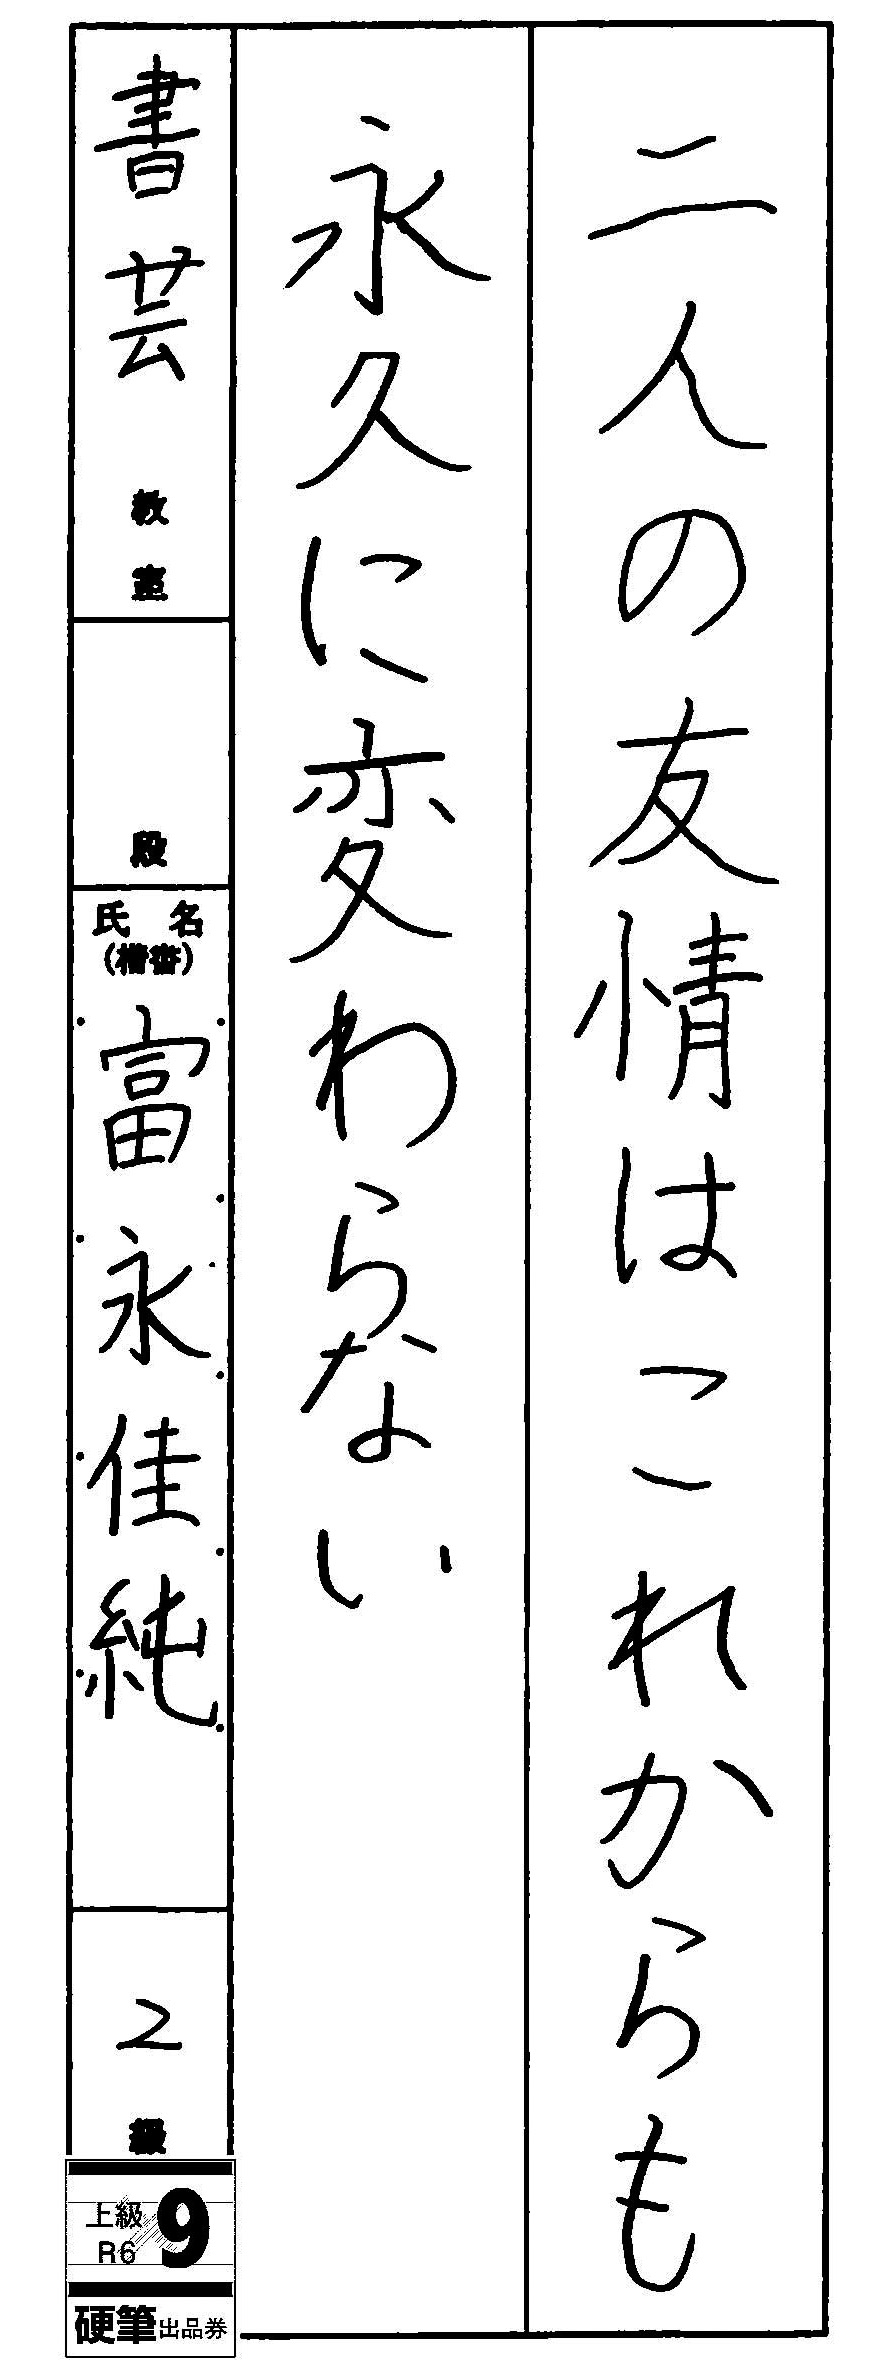 二人の友情はこれからも
永久に変わらない
書芸教室
段
氏名
(楷書)
富永佳純
2級
上級
R6
9
硬筆出品券